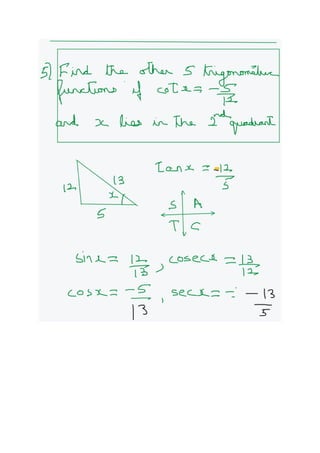 5) Find the other 5 trigonometric
functions if cot x = -5/12
and x lies in the 2nd quadrant
Tan x = -12/5
12 13 x 5
S A
T C
sin x = 12/13, cosec x = 13/12
cos x = -5/13, sec x = - -13/5